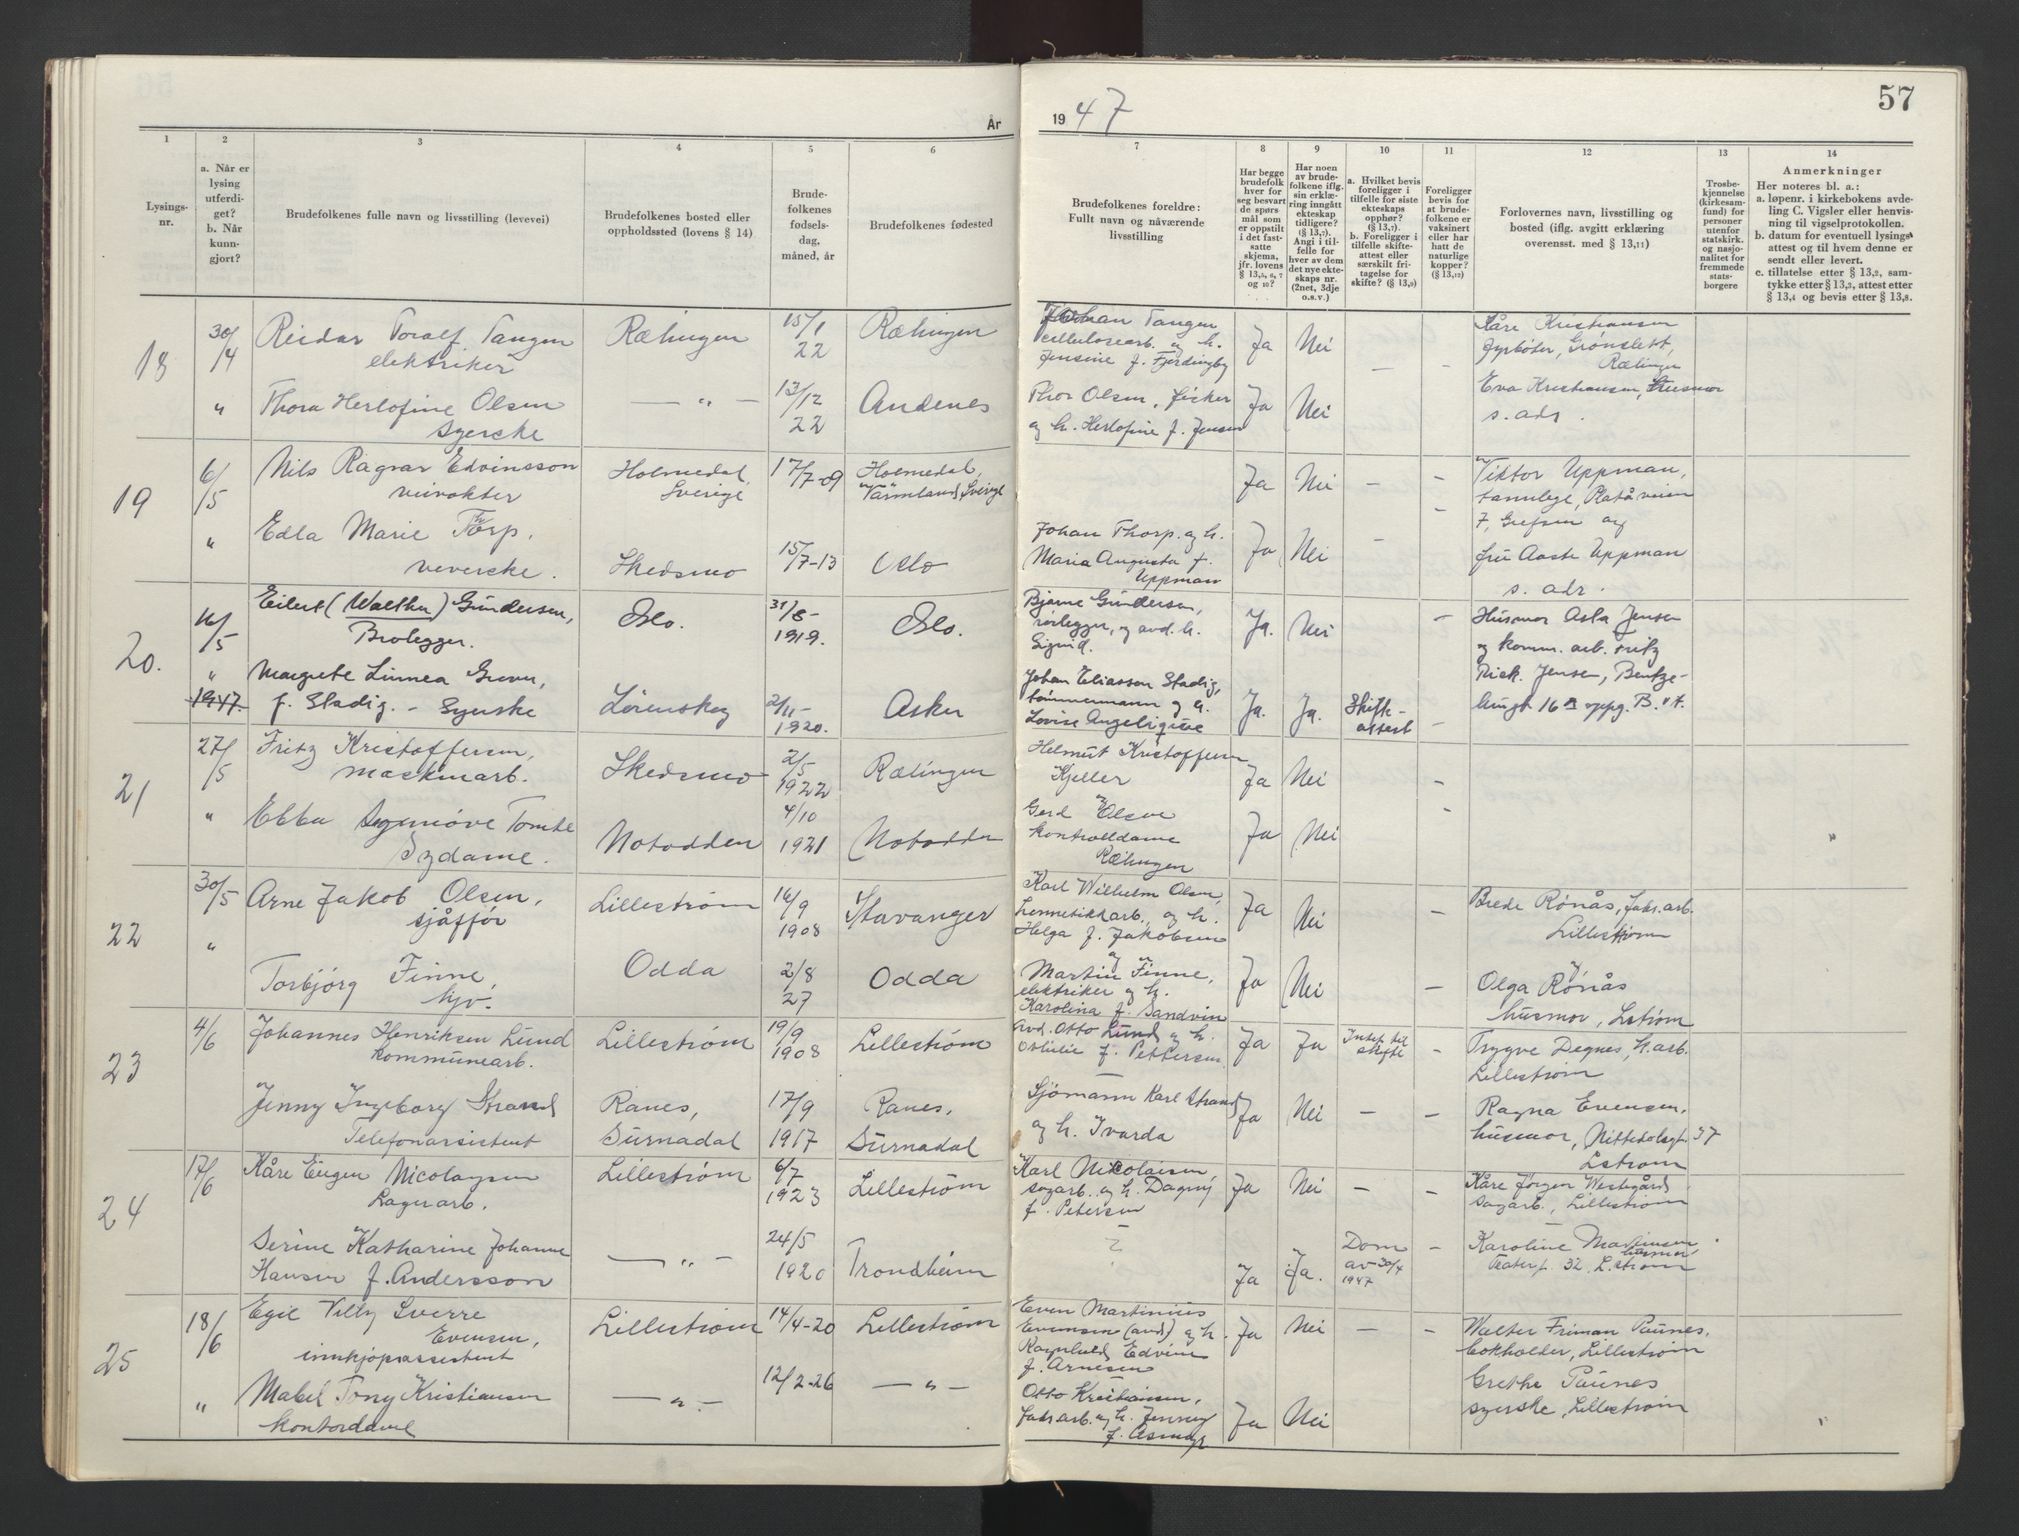 57
År
19 47
1
2
3
4
5
6
7
8
9
10
11
12
13
14
Lysings-
nr.
a. Når er
lysing
utferdi-
get?
b. Når
kunn-
gjort?
Brudefolkenes fulle navn og livsstilling (levevei)
Brudefolkenes bosted eller
oppholdssted (lovens § 14)
Brude-
folkenes
fødsels-
dag,
måned, år
Brudefolkenes fødested
Brudefolkenes foreldre:
Fullt navn og nåværende
livsstilling
Har begge
brudefolk
hver for
seg besvart
de spørs-
mål som
er oppstilt
i det fast-
satte
skjema,
jfr. lovens
§ 13,5, 6, 7
og 10?
Har noen
av brude-
folkene iflg.
sin erklæ-
ring inngått
ekteskap
tidligere?
(§ 13,7).
Angi i til-
felle for
hver av dem
det nye ekte-
skaps nr.
(2net, 3dje
o.s.v.)
a. Hvilket bevis
foreligger i
tilfelle for siste
ekteskaps
opphør?
(§ 13,7).
b. Foreligger i
tilfelle skifte-
attest eller
særskilt fri-
tagelse for
skifte? (§ 13,9)
Foreligger
bevis for
at brude-
folkene er
vaksinert
eller har
hatt de
naturlige
kopper?
(§ 13,12)
Forlovernes navn, livsstilling og
bosted (iflg. avgitt erklæring
overensst. med § 13,11)
Trosbe-
kjennelse
(kirkesam-
fund) for
personer
utenfor
statskirk.
og nasjo-
nalitet for
fremmede
stats-
borgere
Anmerkninger
Her noteres bl. a.:
a. løpenr. i kirkebokens avde-
ling C. Vigsler eller henvis-
ning til vigselprotokollen.
b. datum for eventuell lysings-
attest og til hvem denne er
sendt eller levert.
c. tillatelse etter § 13,2, sam-
tykke etter § 13,3, attest etter
§ 13,4 og bevis etter § 13,8.
18
30/4
Reidar Toralf Tangen
elektriker
Rælingen
15/1
22
Rælingen
Johan Tangen
cellulosearb. og h.
Jensine f. Fjerdingby
Ja
Nei
Kåre Kristiansen
fyrbøter, Grønslett,
Rælingen
"
Thora Herlofine Olsen
syerske
— " —
13/12
22
Andenes
Thor Olsen, fisker
og h. Herlofine f. Jensen
Ja
Nei
—
-
Eva Kristiansen, husmor
s. adr.
19
6/5
Nils Ragnar Edvinsson
veivokter
Holmedal
Sverige
17/7-09
Holmedal,
Värmland, Sverige
Ja
Nei
-
-
Viktor Uppman,
tannlege, Platåveien
7, Grefsen og
"
Edla Marie Torp.
veverske.
Skedsmo
15/7-13
Oslo
Johan Thorp. og h.
Maria Augusta f.
Uppman
Ja
Nei
-
-
fru Aaste Uppman
s. adr.
20.
16/5
Eilert (Walther) Gundersen,
Brolegger.
Oslo.
31/8-
1919.
Oslo.
Bjarne Gundersen,
rørlegger, og avd. h.
Sigrid.
Ja.
Nei
-
Husmor Asta Jensen
og komm. arb. Fritz
"
1947.
Margrete Linnea Greven,
f. Stadig. - Syerske
Lørenskog
2/11-
1920.
Asker
Johan Eliasson Stadig,
tømmermann og h.
Lovise Angelique
Ja.
Ja.
Skifte-
attest
-
Rick. Jensen, Bentse-
brugt 16 B oppg. B. II.
21
27/5
Fritz Kristoffersen,
maskinarb.
Skedsmo
2/5
1922
Rælingen
Helmut Kristoffersen
Kjeller
Ja
Nei
-
"
Ebba Synnøve Tomte
Sydame.
Notodden
4/10
1921
Notodden
Gerd Olsen
kontrolldame
Rælingen
Ja
Nei
-
22
30/5
Arne Jakob Olsen,
sjåfør
Lillestrøm
16/9
1908
Stavanger
Karl Wilhelm Olsen,
hermetikkarb., og h.
Helga f. Jakobsen
Ja
Nei
—
Brede Rønås, fabr.arb.
Lillestrøm
"
Torbjørg Finne,
hjv.
Odda
2/8
27
Odda
Martin Finne,
elektriker og h.
Karolina f. Sandvin
Ja
Nei
—
Olga Rønås
husmor, Lstrøm
23
4/6
Johannes Henriksen Lund
kommunearb.
Lillestrøm
19/9
1908
Lillestrøm
avd. Otto Lund og h.
Othilie f. Pettersen
Ja
Ja
Intet til
skifte
-
Trygve Degnes, h.arb.
Lillestrøm
Jenny Ingeborg Strand
Telefonassistent
Ranes,
Surnadal
17/9
1917
Ranes,
Surnadal
Sjömann Karl Strand
og h. Ivarda
Ja
Nei
—
—
Ragna Evensen,
husmor, Nittedalsgt. 37
Lstrøm
24
17/6
Kåre Eugen Nicolaysen
Lagerarb.
Lillestrøm
6/7
1923
Lillestrøm
Karl Nicolaisen
sagarb. og h. Dagny
f. Petersen
Ja
Nei
—
-
Kåre Jörgen Westgård
sagarb., Lillestrøm
Serine Katharine Johanne
Hansen f. Andersson
— " —
24/5
1920
Trondheim
?
Ja
Ja.
Dom
av 30/4
1947
-
Karoline Martinsen
husmor
Teatergt. 32, L.strøm
25
18/6
Egil Villy Sverre
Evensen,
innkjøpsassistent
Lillestrøm
14/4-20
Lillestrøm
Even Martinius
Evensen (avd) og h.
Ragnhild Edvine
f. Arnesen
Ja
Nei
—
-
Walter Friman Paunes,
bokholder, Lillestrøm
"
Mabel Tony Kristiansen
kontordame
— " —
12/2-26
— " —
Otto Kristiansen,
fabr.arb. og h. Jenny
Ja
Nei
Grethe Paunes
syerske, Lillestrøm